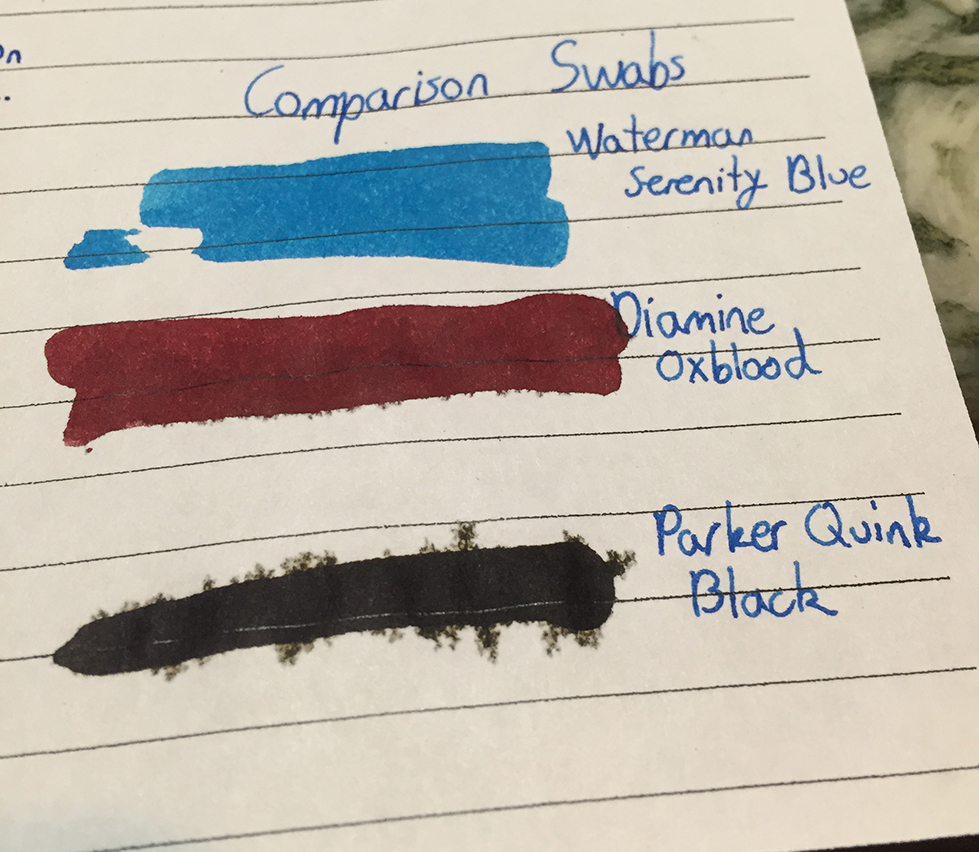 Comparison Swabs
Waterman
Serenity Blue
Diamine
Oxblood
Parker Quink
Black